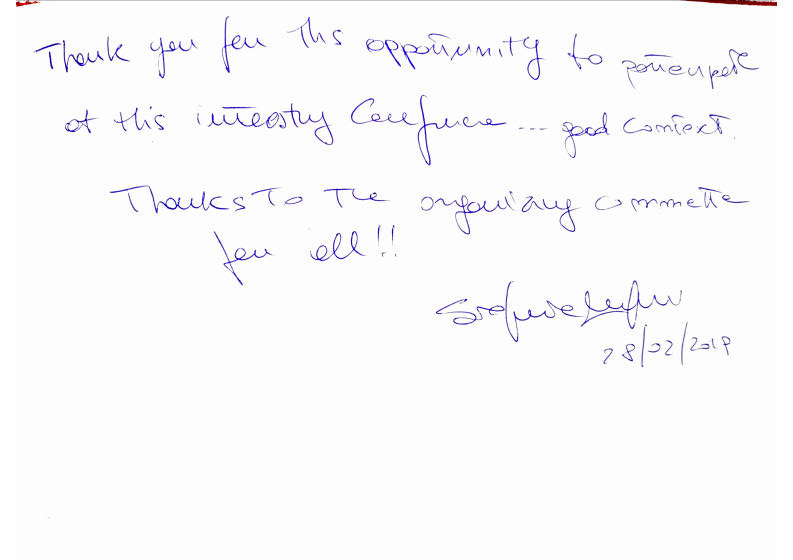 Thank you for this opportunity to participate
at this interesting Conference... good context.
Thanks to the organizing committe
for all!!
28/02/2019